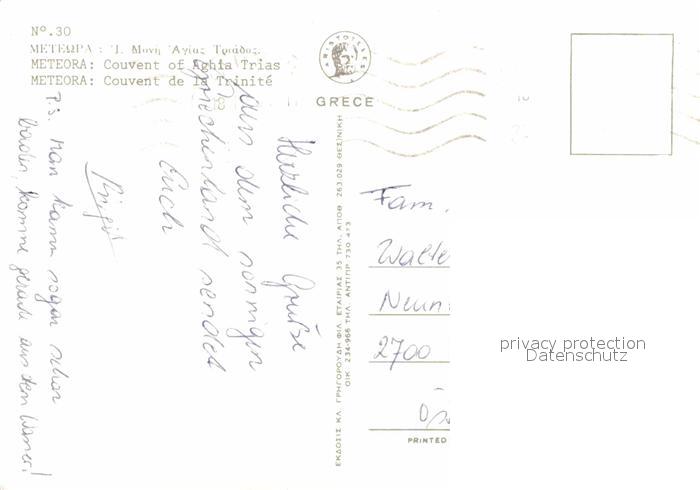 Nº.30
ΜΕΤΕΩΡΑ : Ἱ. Μονὴ Ἁγίας Τριάδος.
METEORA: Couvent of Aghia Trias
METEORA: Couvent de la Trinité
ΑΡΙΣΤΟΤΕΛΗΣ
GRECE
Herzliche Grüße
aus dem sonnigen
Griechenland sendet
Euch
Birgit
P.S. Man kann sogar schon
baden, komme gerade aus dem Wasser!
ΕΚΔΟΣΙΣ ΚΛ. ΓΡΗΓΟΡΟΥΔΗ ΦΙΛ. ΕΤΑΙΡΙΑΣ 35 ΤΗΛ. ΑΠΟΘ. 263.029 ΘΕΣ/ΝΙΚΗ
ΟΙΚ. 234-966 ΤΗΛ. ΑΝΤΙΠΡ. 730.473
Fam.
Walte
Neun
2700
Ös
PRINTED
privacy protection
Datenschutz